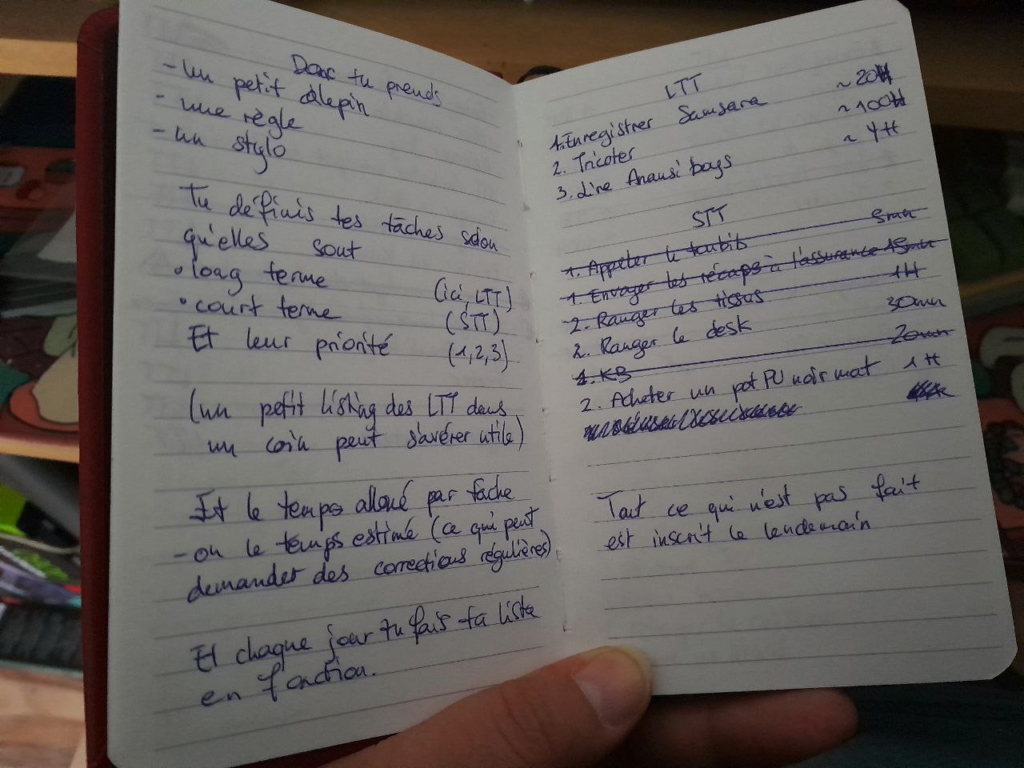 Donc tu prends
- Un petit calepin
- une règle
- un stylo
Tu définis tes tâches selon
qu'elles sont
• long terme (ici, LTT)
• court terme (STT)
Et leur priorité (1,2,3)
(un petit listing des LTT dans
un coin peut s'avérer utile)
Et le temps alloué par tâche
- ou le temps estimé (ce qui peut
demander des corrections régulières)
Et chaque jour tu fais ta liste
en fonction.
LTT
1. Enregistrer Samsara ~20H
2. Tricoter ~100H
3. Lire Anansi boys ~ 4H
STT
1. Appeler le toubib 5mn
1. Envoyer les récaps à l'assurance 15mn
2. Ranger les tissus 1H
2. Ranger le desk 30mn
1. KB 20mn
2. Acheter un pot PU noir mat 1H
Tout ce qui n'est pas fait
est inscrit le lendemain